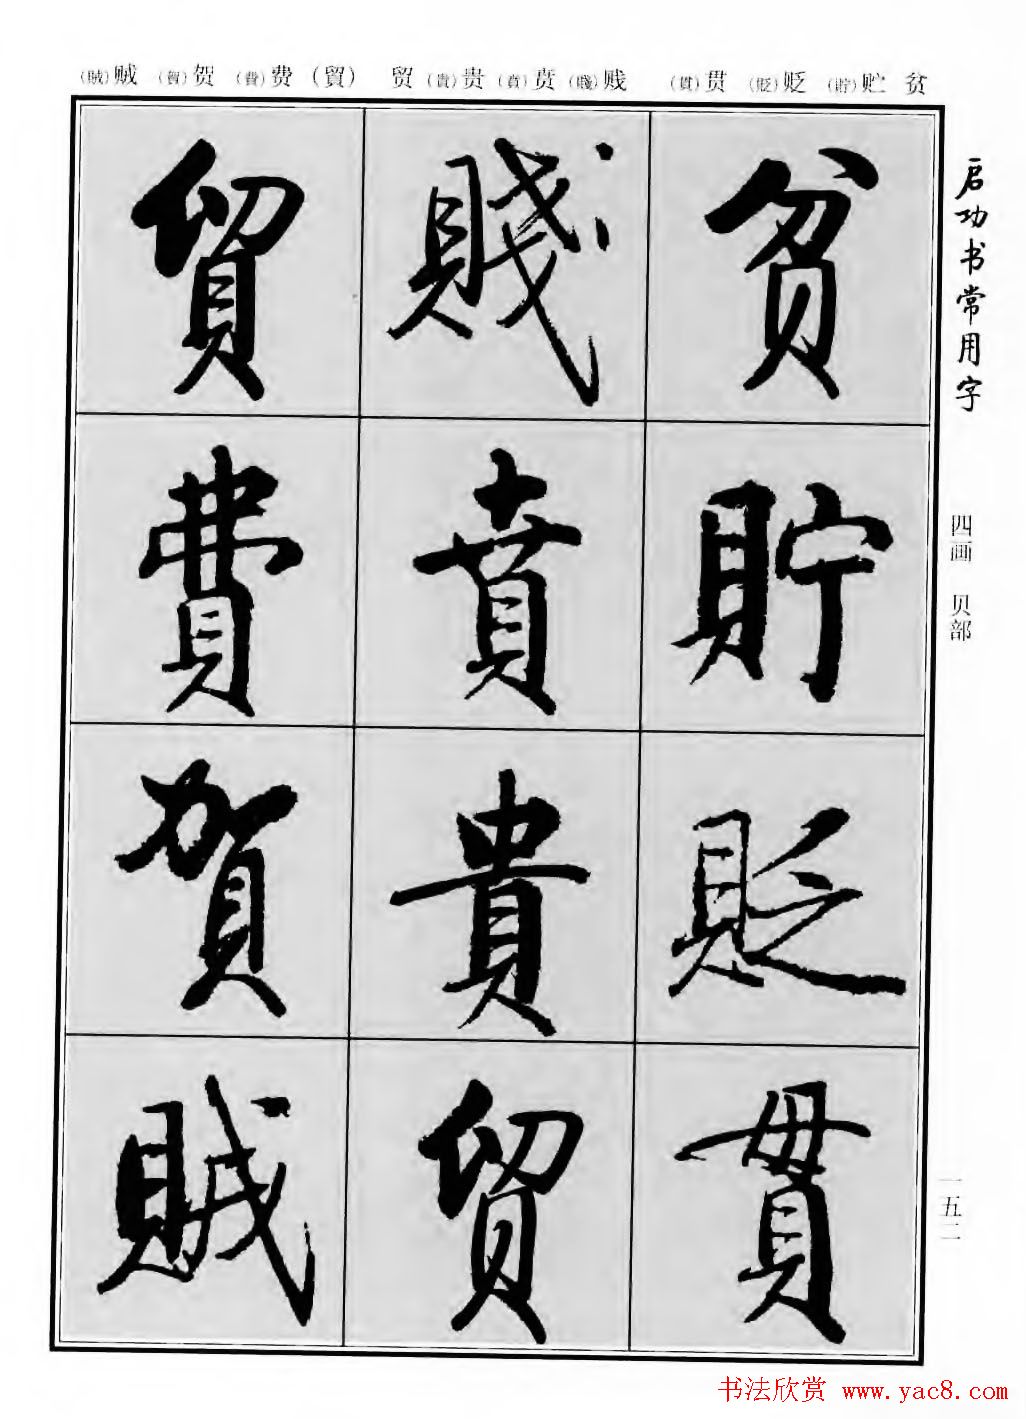 (賊)贼 (賀)贺 (費)费 (貿) 贸 (貴)贵 (賁)贲 (賤)贱 (貫)贯 (貶)贬 (貯)贮 贫
启功书常用字
四画 贝部
一五二
贫
貯
貶
貫
賤
賁
貴
贸
貿
費
賀
賊
书法欣赏 www.yac8.com